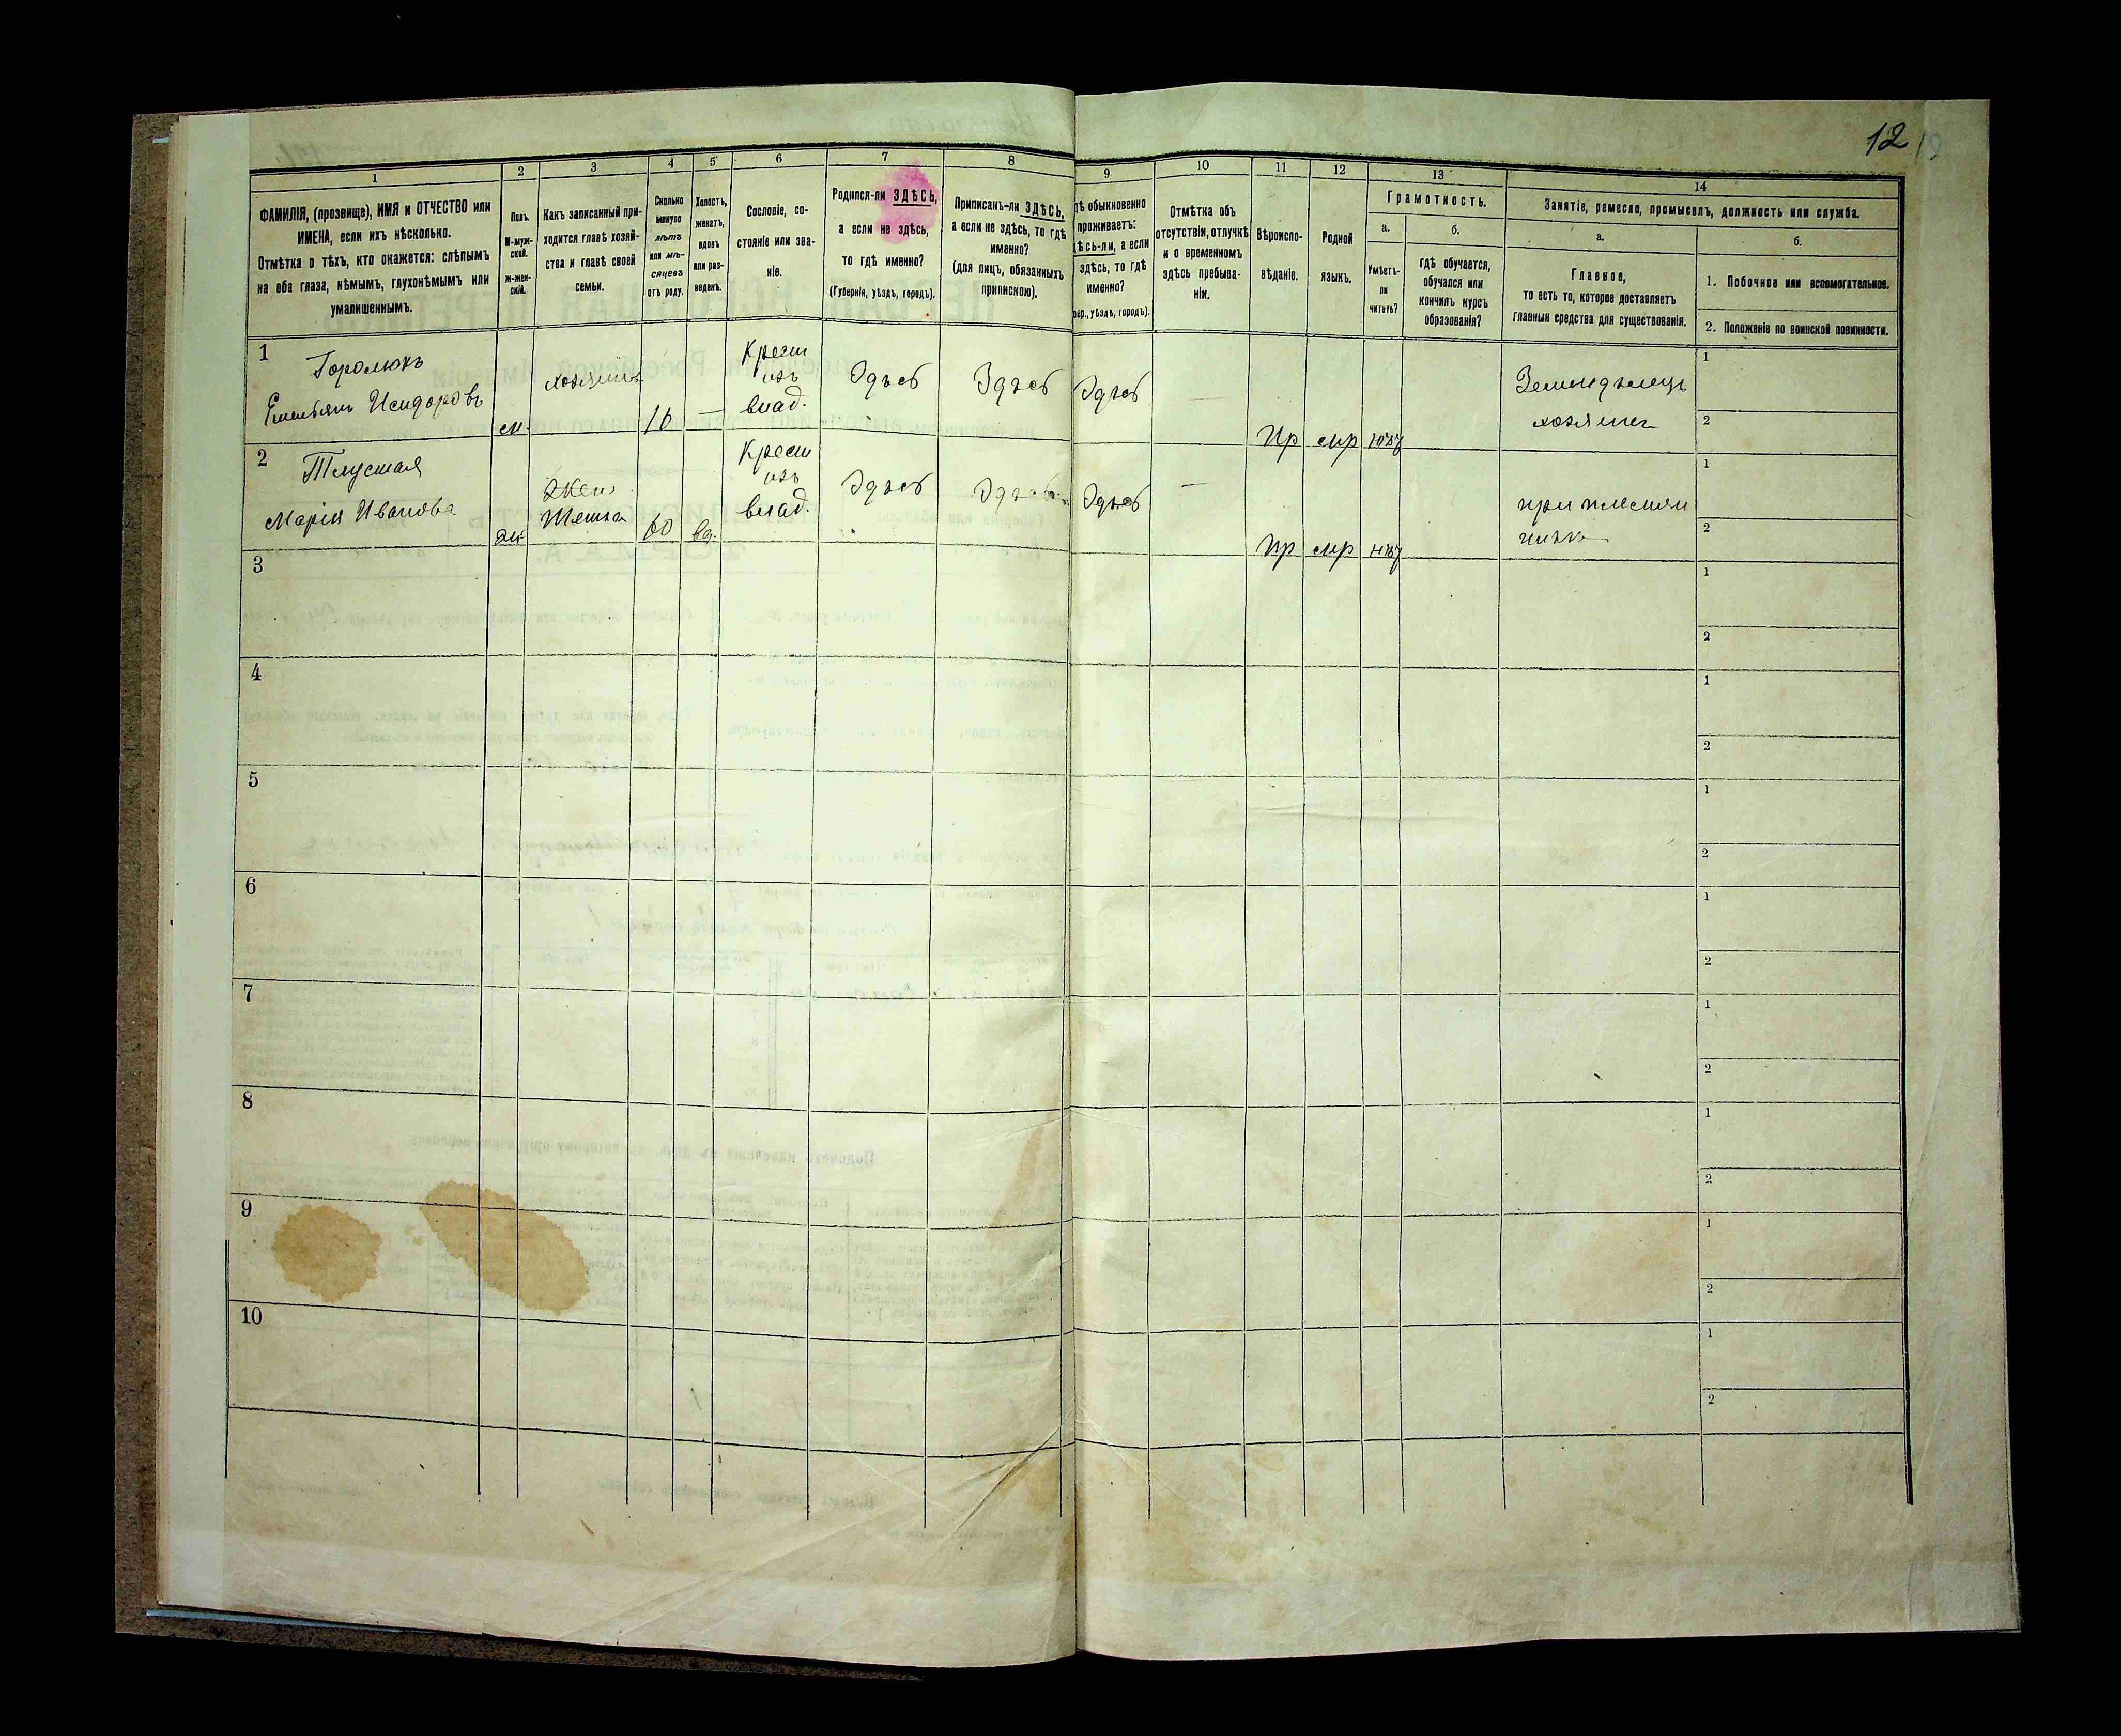 12
1
2
3
4
5
6
7
8
9
10
11
12
13
14
ФАМИЛІЯ, (прозвище), ИМЯ и ОТЧЕСТВО или
ИМЕНА, если ихъ нѣсколько.
Отмѣтка о тѣхъ, кто окажется: слѣпымъ
на оба глаза, нѣмымъ, глухонѣмымъ или
умалишеннымъ.
Полъ.
М-муж-
ской.
Ж-жен-
скій.
Какъ записанный при-
ходится главѣ хозяй-
ства и главѣ своей
семьи.
Сколько
минуло
лѣтъ
или мѣ-
сяцевъ
отъ роду.
Холостъ,
женатъ,
вдовъ
или раз-
веденъ.
Сословіе, со-
стояніе или зва-
ніе.
Родился-ли ЗДѢСЬ,
а если не здѣсь,
то гдѣ именно?
(Губернія, уѣздъ, городъ).
Приписанъ-ли ЗДѢСЬ,
а если не здѣсь, то гдѣ
именно?
(для лицъ, обязанныхъ
припискою).
дѣ обыкновенно
проживаетъ:
дѣсь-ли, а если
здѣсь, то гдѣ
именно?
бер., уѣздъ, городъ).
Отмѣтка объ
отсутствіи, отлучкѣ
и о временномъ
здѣсь пребыва-
ніи.
Вѣроиспо-
вѣданіе.
Родной
языкъ.
Грамотность.
а.
Умѣетъ-
ли
читать?
б.
гдѣ обучается,
обучался или
кончилъ курсъ
образованія?
Занятіе, ремесло, промыселъ, должность или служба.
а.
Главное,
то есть то, которое доставляетъ
главныя средства для существованія.
б.
1. Побочное или вспомогательное.
2. Положеніе по воинской повинности.
1
Горолюкъ
Емельянъ Исидоровъ
м.
хозяинъ
16
—
Крест
изъ
влад.
Здѣсь
Здѣсь
Здѣсь
—
Пр
мр
Земледѣлецъ
хозяинъ
1
2
2
Тлустая
Марія Иванова
Тетка
60
вд.
Крест
изъ
влад.
Здѣсь
Здѣсь
Здѣсь
—
Пр
мр
при племян
никѣ
1
2
3
1
2
4
1
2
5
1
2
6
1
2
7
1
2
8
1
2
9
1
2
10
1
2